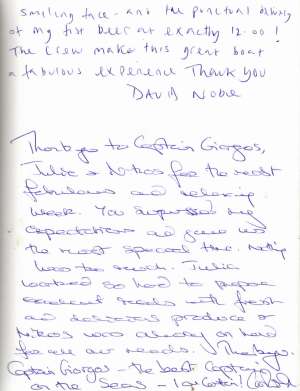 smiling face - and the punctual delivery
of my first beer at exactly 12.00!
The crew make this great boat
a fabulous experience Thank you
DAVID NOBLE
Thankyou to Captain Giorgos,
Julie & Nikos for the most
fabulous and relaxing
week. You surpassed my
expectations and gave us
the most special time. Nothing
was too much. Julie
worked so hard to prepare
excellent meals with fresh
and delicious produce &
Nikos was always on hand
for all our needs. Thankyou.
Captain Giorgos - the best Captain
on the Seas -